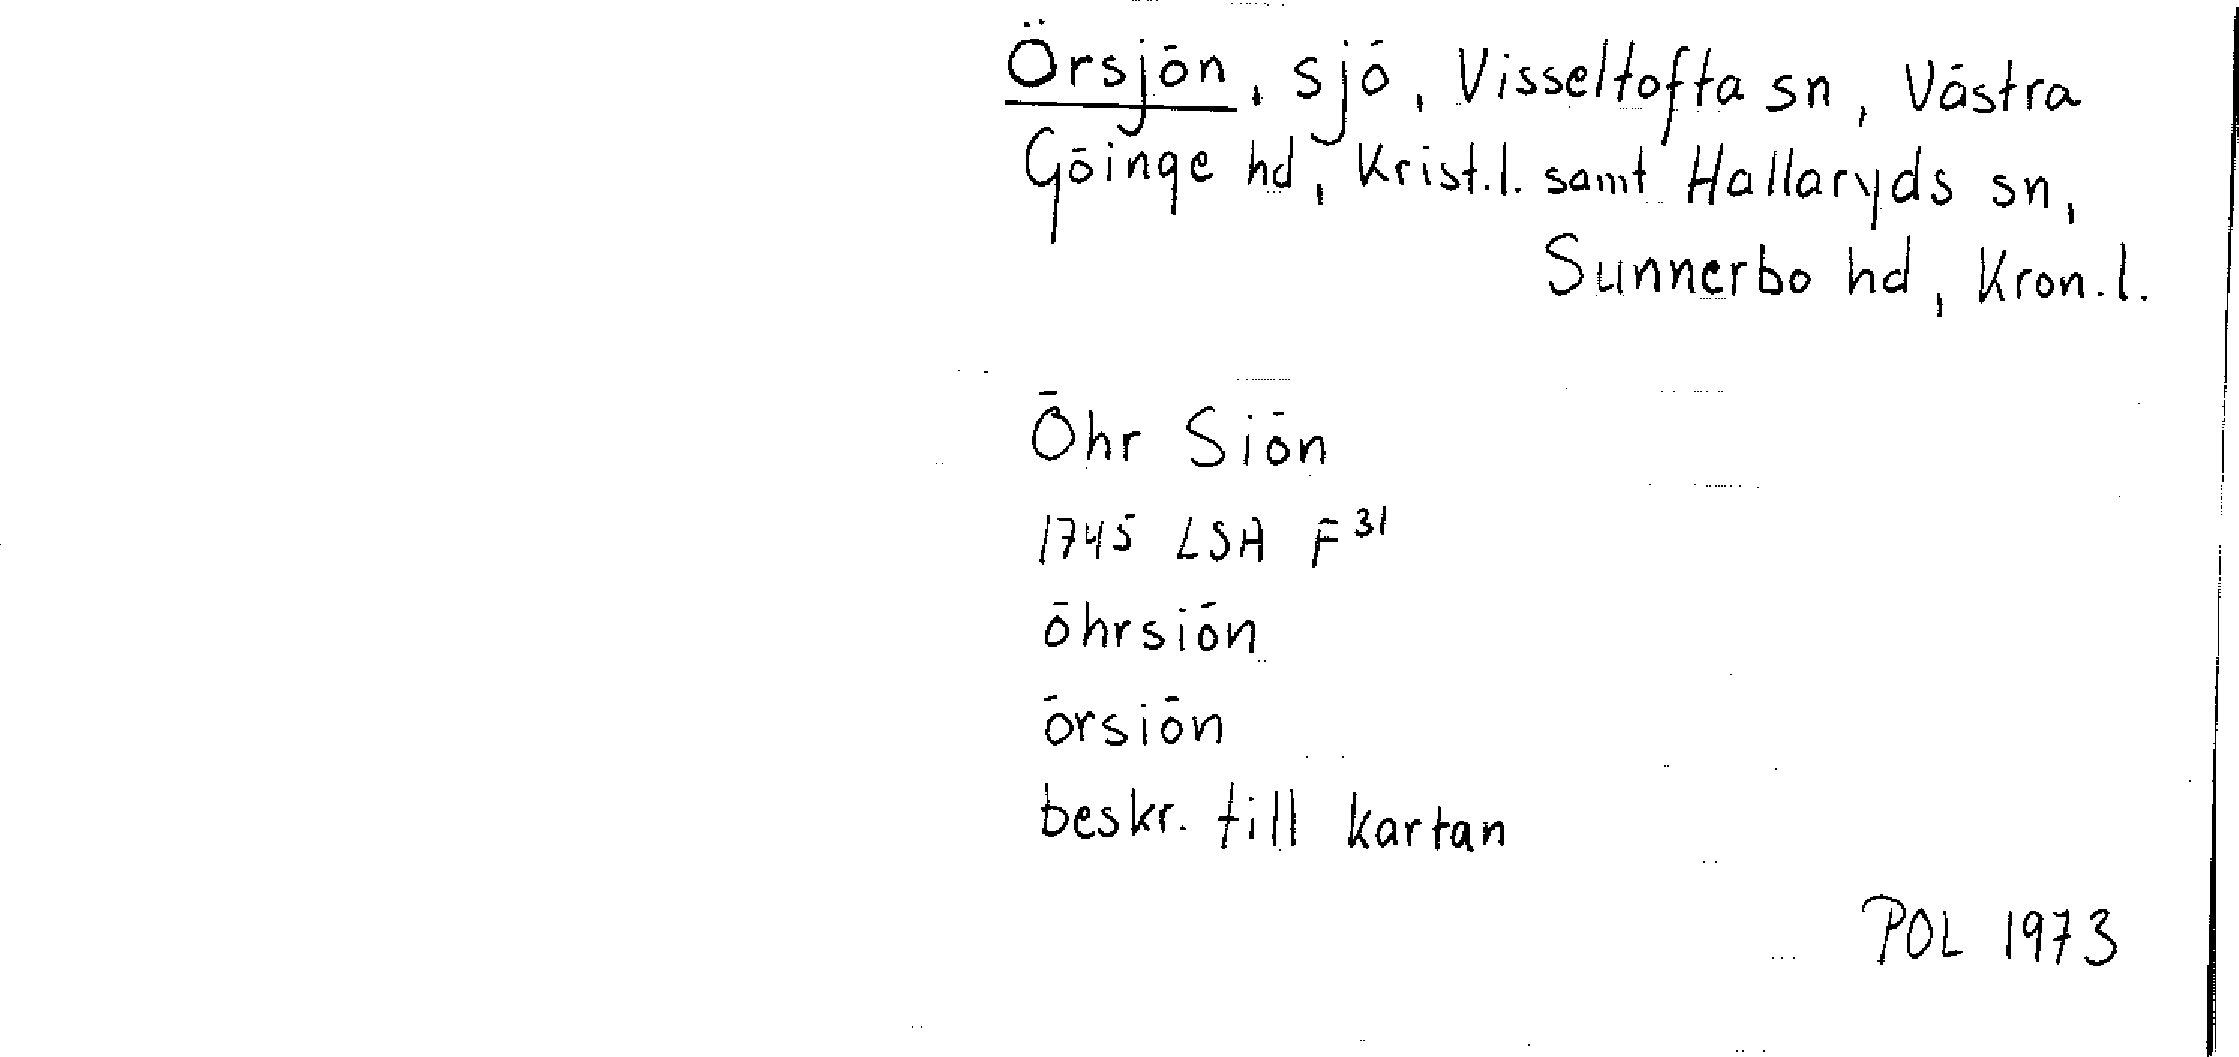 Örsjön, sjö, Visseltofta sn, Västra
Göinge hd, Krist.l. samt Hallaryds sn,
Sunnerbo hd, Kron.l.
Öhr Siön
1745 LSA F31
öhrsiön
örsiön
beskr. till kartan
POL 1973